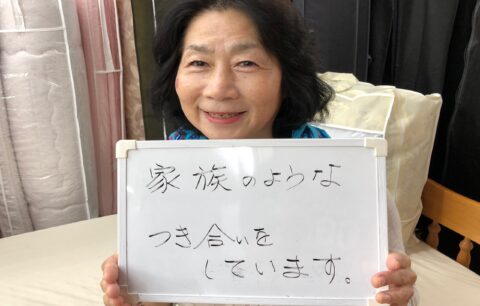 家族のような
つき合いを
しています。